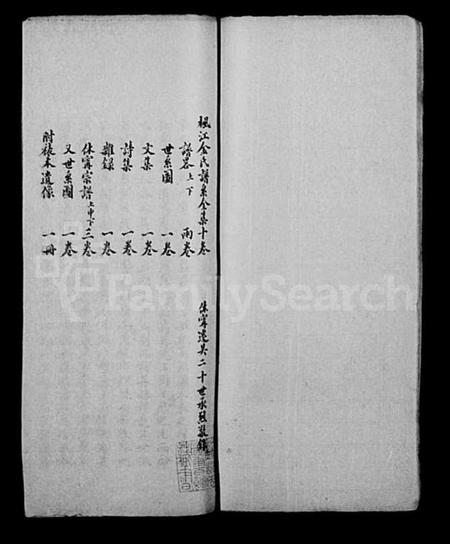 楓江金氏譜系全集十卷 休寧遷吳二十世承烈敬錄
譜畧上下 兩卷
世系圖 一卷
文集 一卷
詩集 一卷
雜錄 一卷
休寧宗譜上中下三卷
又世系圖 一卷
附裱本遺像 一冊
FamilySearch